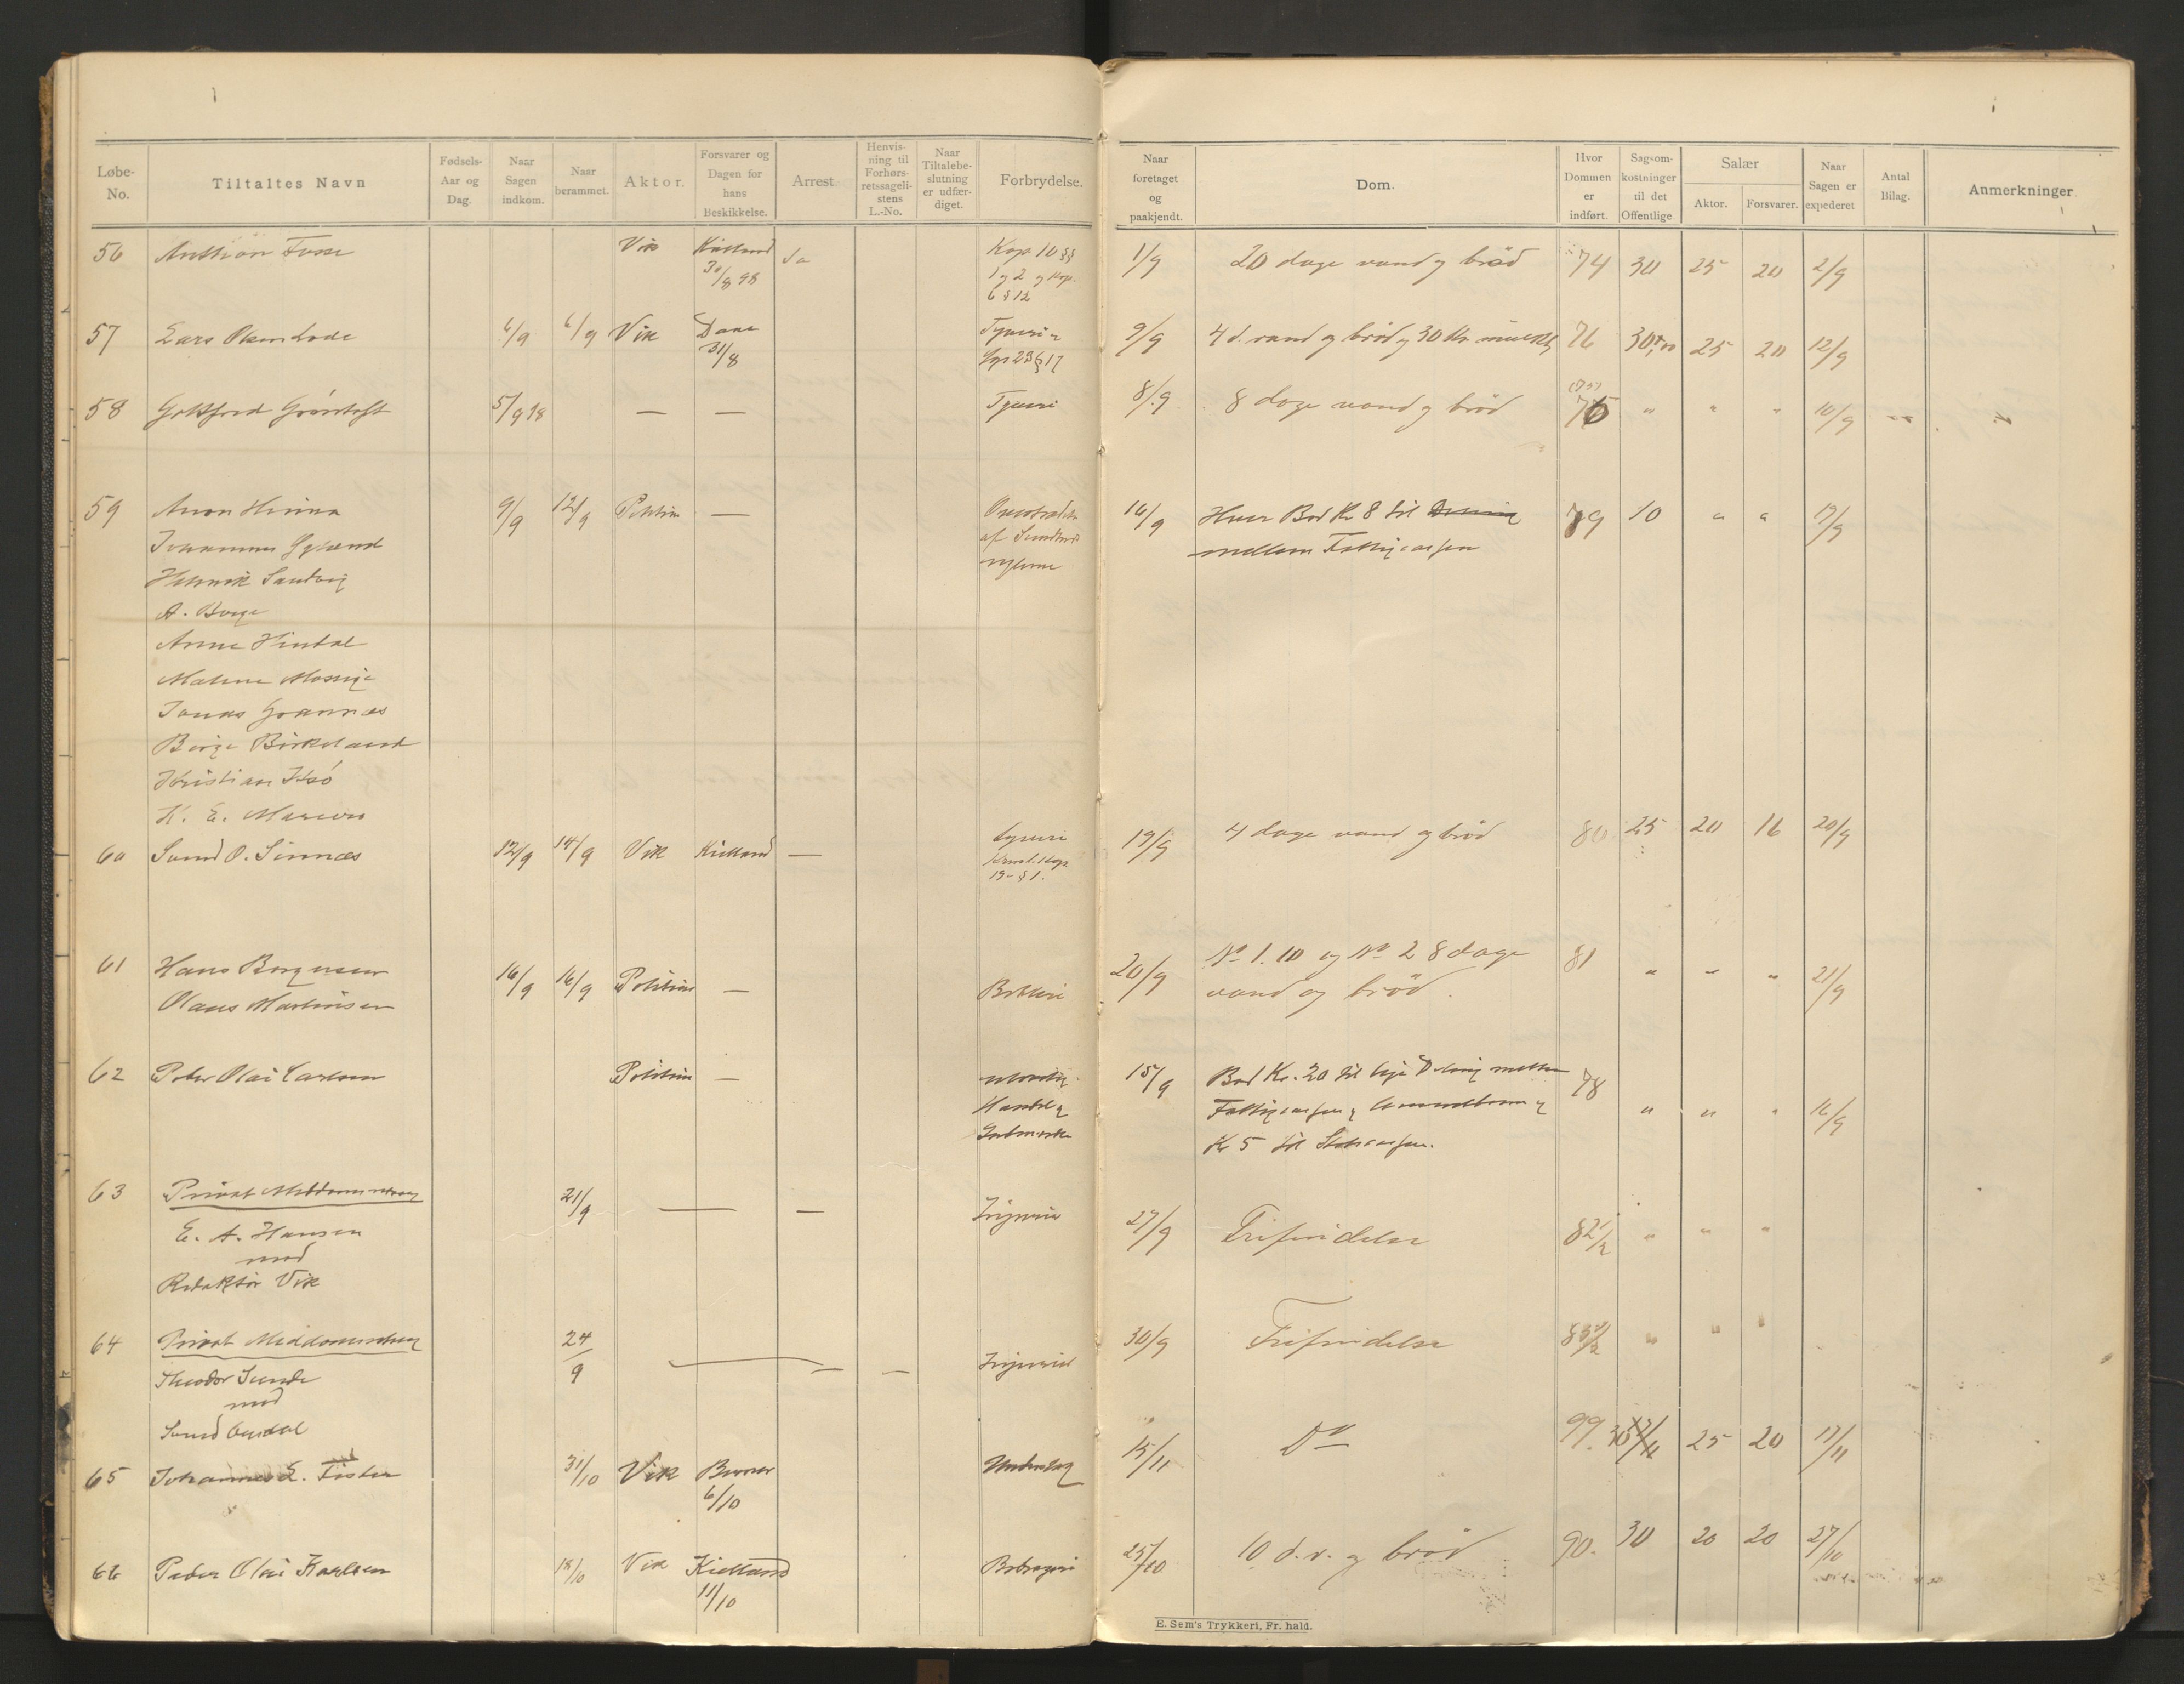 Løbe-No.
Tiltaltes Navn
Fødsels-Aar og Dag.
Naar Sagen indkom.
Naar berammet.
Aktor.
Forsvarer og Dagen for hans Beskikkelse.
Arrest.
Henvisning til Forhørsretssagelistens L.-No.
Naar Tiltalebeslutning er udfærdiget.
Forbrydelse.
Naar foretaget og paakjendt.
Dom.
Hvor Dommen er indført.
Sagsomkostninger til det Offentlige
Salær
Aktor.
Forsvarer.
Naar Sagen er expederet
Antal Bilag.
Anmerkninger
56 Vik Kielland 30/8 98 Ja Kap 10 §§ 1 og 2 og Kap. 6 § 12 1/9 20 dage vand og brød 74 30 25 20 2/9
57 Lars 6/9 6/9 Vik Dane 31/8 Tyveri 9/9 4 d. vand og brød og 30 Kr mulkt 76 25 20 12/9
58 Gottfred Grøntoft 5/9 98 — — Tyveri 8/9 8 dage vand og brød 75 " " " 10/9
59 Aron Hinna 9/9 12/9 Politim — 16/9 Hver Bod Kr 8 til 79 10 " " 17/9
Gyland af Sundheds mellem Fattigcassen
Henrik Sandvig reglerne
A. Berge
Arne Hindal
Malene Mossige
Jonas Grannæs
Børge Birkeland
Kristian
K. E.
60 Svend O. Sinnæs 12/9 14/9 Vik Kielland — Tyveri Kriml. Kap. 19 - § 1. 19/9 4 dage vand og brød 80 25 20 16 20/9
61 Hans Borgersen 16/9 16/9 Politim — Betleri 20/9 No 1. 10 og No 2 8 dage 81 " " " 21/9
Olaus Martinsen vand og brød.
62 Peder Olai Carlsen Politim — ulovlig Handel og 15/9 Bod Kr. 20 til lige Deling mellem 78 " " " 16/9
Fattigcassen og
Kr 5 til Statscassen.
63 Privat Meddomsretssag 21/9 — — Injurier 27/9 Frifindelse 82 1/2 " " "
E. A. Hansen
mod
Redaktør Vik
64 Privat Meddomsretssag 24/9 — — — Injurier 30/9 Frifindelse " " "
Theodor Sunde
mod
Svend
65 Johannes E. Fister 31/10 Vik 6/10 Underslag 15/11 Do 99. 25 20 17/11
66 Peder Olai Karlsen 18/10 Vik Kielland 11/10 Bedrageri 25/10 10 d. v. og brød 90. 30 20 20 27/10
E. Sem's Trykkeri, Fr. hald.